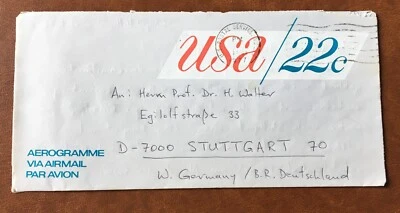 usa/22c
An: Herrn Prof. Dr. H. Walter
Egilolfstraße 33
D-7000 STUTTGART 70
W. Germany/B.R. Deutschland
AEROGRAMME
VIA AIRMAIL
PAR AVION